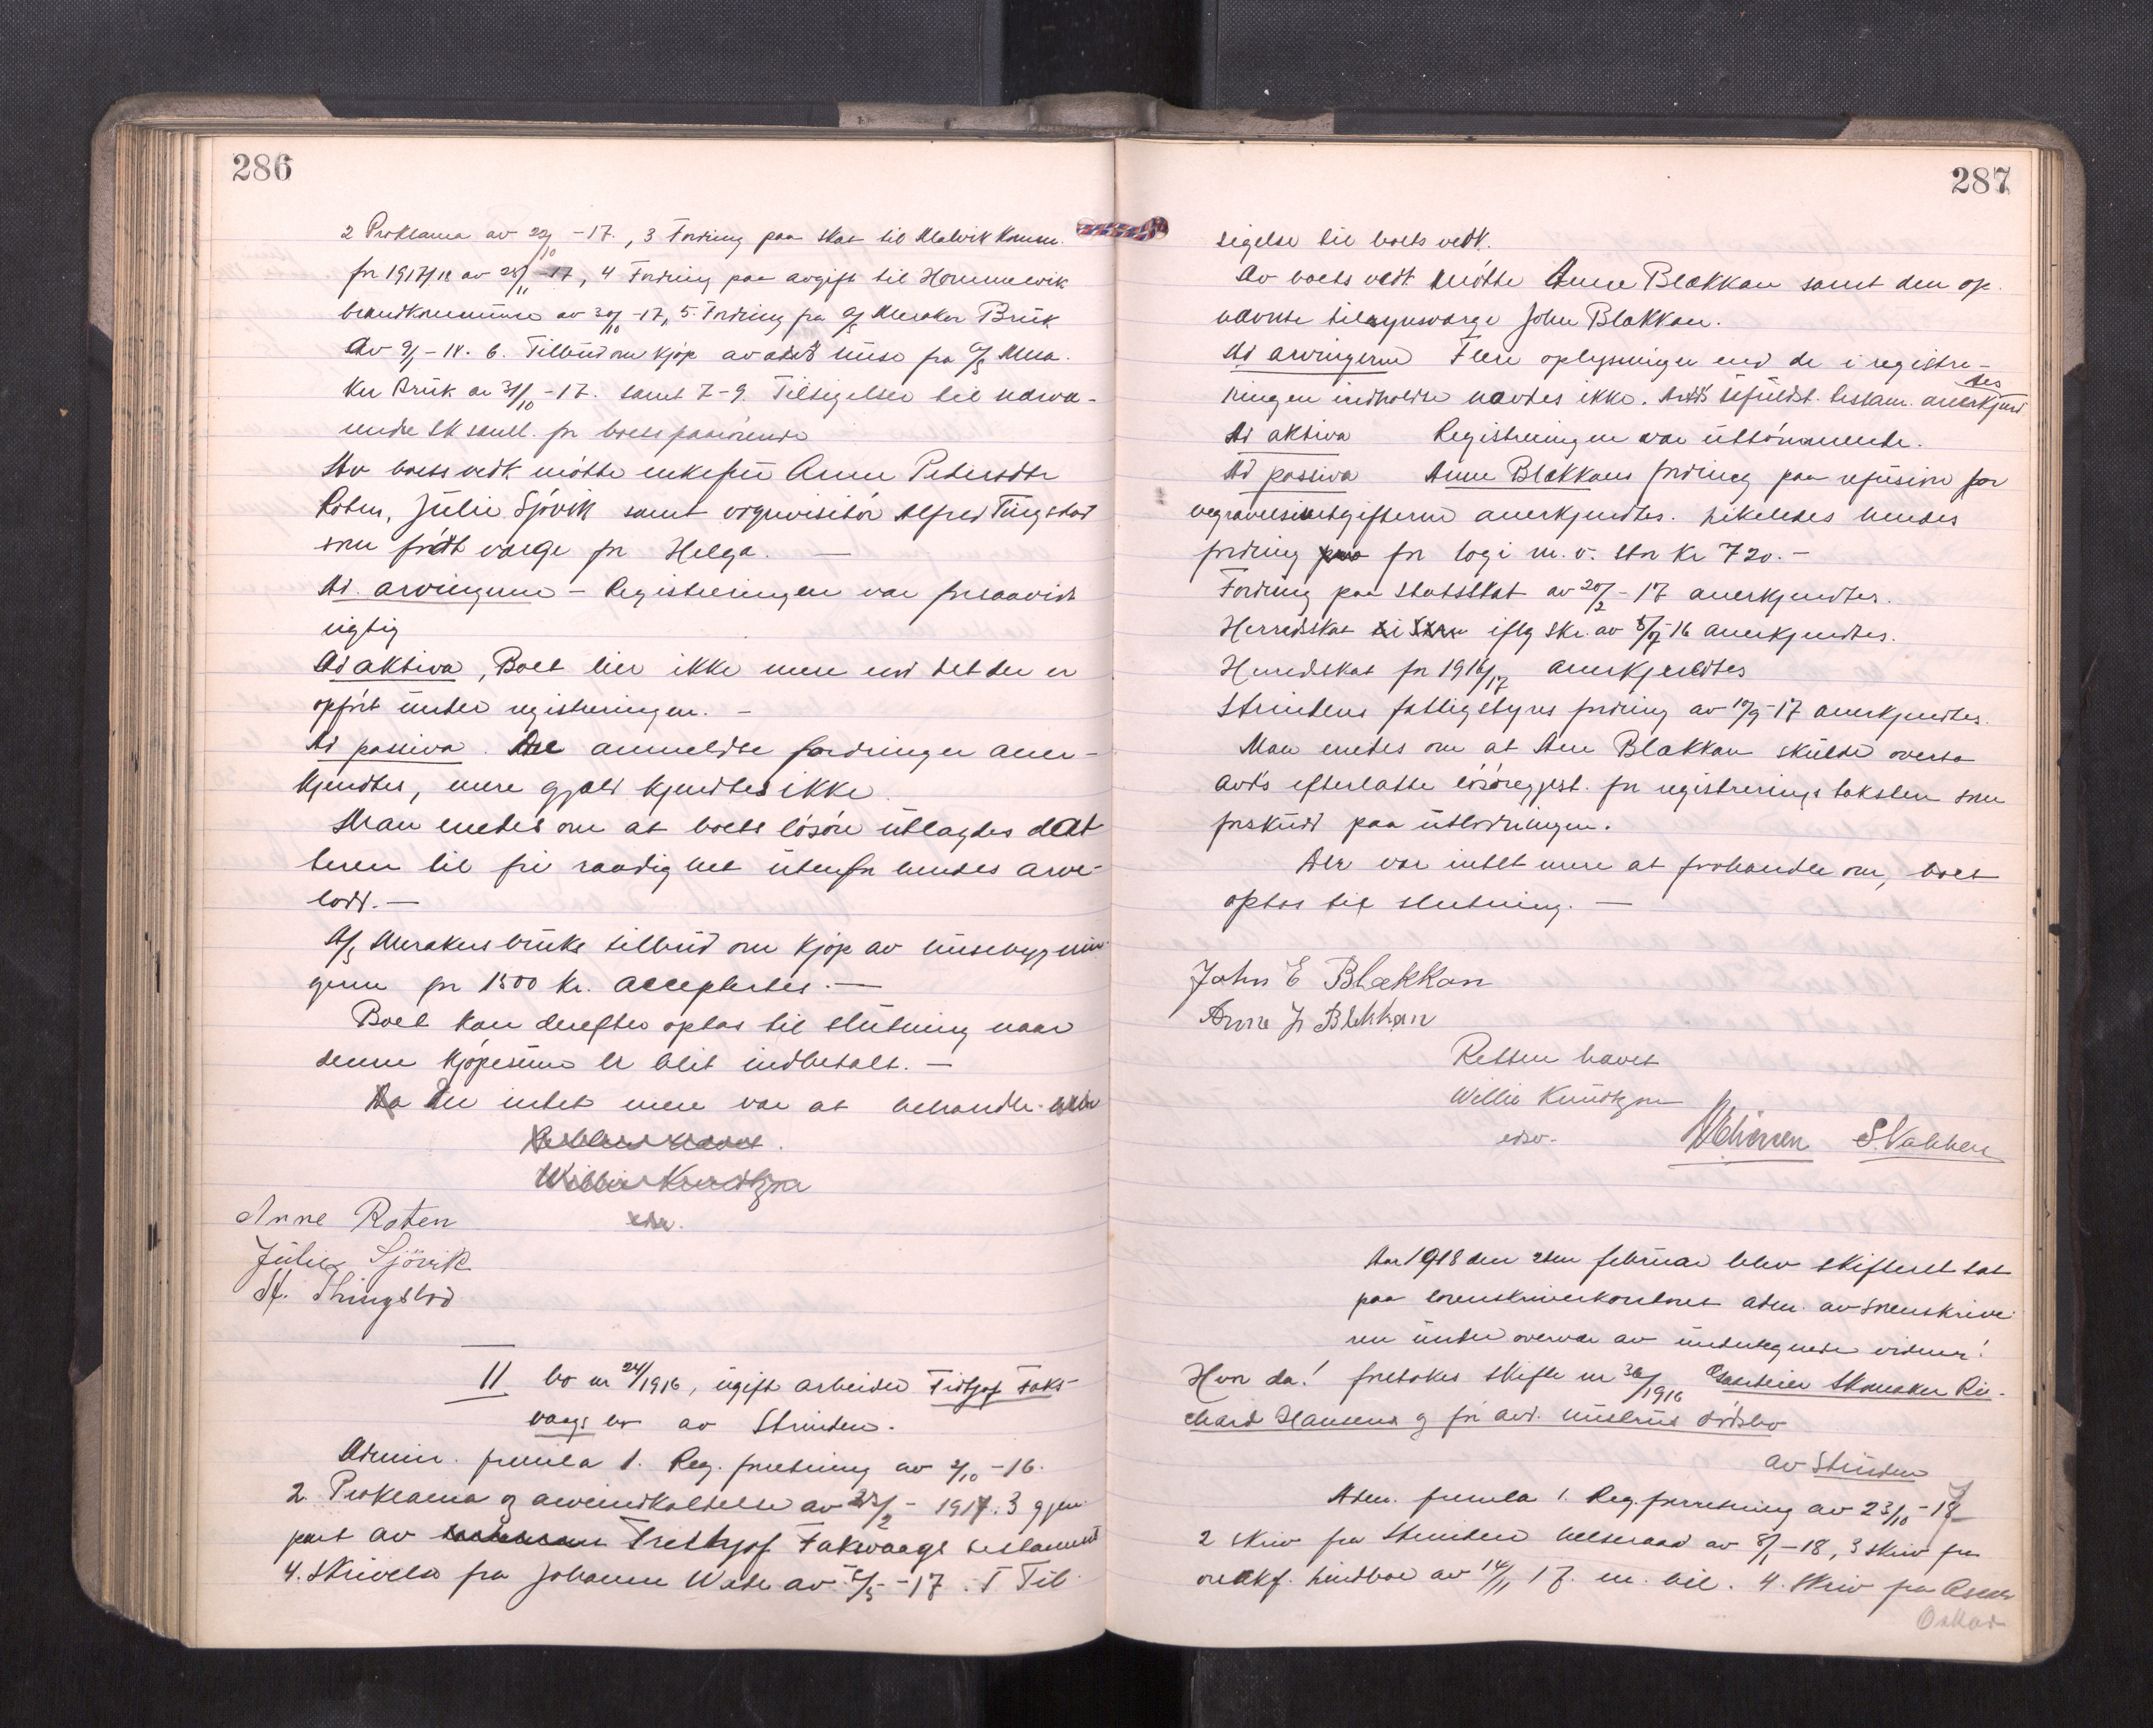 286
2 Proklama av 22/10 -17., 3 Fordring paa skat til Malvik Komm.
for 1917/18 av 28/11 -17, 4 Fordring paa avgift til Hommelvik
brandkommune av 30/10 -17, 5. Fordring fra A/S Meraker Bruk
av 9/1 - 18. 6. Tilbud om kjøp av avd's huse fra A/S Mera-
ker Bruk av 31/10 -17. samt 7-9. Tilsigelser til nærvæ-
rende sk saml. for boets paarørende
Av boets vedk. møtte enkefru Anne Petersdtr
Roten, Julie Sjøvik samt rekvisitør Alfred Tingstad
som født værge for Helga. —
Ad. arvingerne - Registreringen var forsaavidt
rigtig
Ad aktiva, Boet eier ikke mere end det der er
opført under registreringen. -
Ad passiva. De anmeldte fordringer aner-
kjendtes, mere gjæld kjendtes ikke
Man enedes om at boets løsøre utlagdes dat-
teren til fri raadighet utenfor hendes arve-
lodd. —
A/S Merakers bruks tilbud om kjøp av husebygnin-
gerne for 1500 kr. accepteres. —
Boet kan derefter optas til slutning naar
denne kjøpesum er blit indbetalt. —
Da der intet mere var at behandle
Retten hævet.
Willie Knudtzon
edsv.
Anne Roten
Julie Sjövik
A. Thingstad
II bo nr 24/1916, ugift arbeider Fridtjof Faks-
vaags bo av Strinden.
Admin. fremla 1. Reg. forretning av 2/10 -16.
2. Proklama og arveindkaldelse av 22/2 - 1917. 3 gjen-
part av Fridtjof Faksvaags testament
4. Skrivelse fra Johanne Wade av 5/5 -17. 5 Til-
287
sigelse til boets vedk.
Av boets vedk møtte Anne Blækkan samt den op-
nævnte tilsynsværge John Blækkan.
Ad arvingerne Flere oplysninger end de i registre-
ringen indholdte havdes ikke. Avd's testam. anerkjend
tes
Ad aktiva Registreringen var uttømmende.
Ad passiva Anne Blækkans fordring paa refusion for
begravelsesutgifterne anerkjendtes. Likeledes hendes
fordring paa for logi m. v. stor kr 720.-
Fordring paa statsskat av 20/2 - 17 anerkjendtes.
Herredskat iflg skr. av 8/9 -16 anerkjendtes.
Herredskat for 1916/17 anerkjendtes
Strindens fattigstyres fordring av 10/9 -17 anerkjendtes.
Man enedes om at Ane Blækkan skulde overta
avd's efterlatte løsøregjenst. for registreringstaksten som
forskudd paa utlodningen.
Der var intet mere at forhandle om, boet
optas til slutning. —
John E Blækkan
Anne J Blekkan
Retten hævet
Willie Knudtzon
edsv.
S. Vakken
Aar 1918 den 2den februar blev skifteret sat
paa sorenskriverkontoret adm. av sorenskrive-
ren under overvær av undertegnede vidner!
Hvor da! foretokes skifte nr 36/1916 Skomaker Ri-
chard Hansens og før avd. hustrus dødsbo
av Strinden
Adm. fremla 1. Reg. forretning av 23/10 -17
2 skriv fra Strinden helseraad av 8/1 -18, 3 skriv fra
overlkf. Lindboe av 14/11 17. m. bil. 4. Skriv fra
Oskar